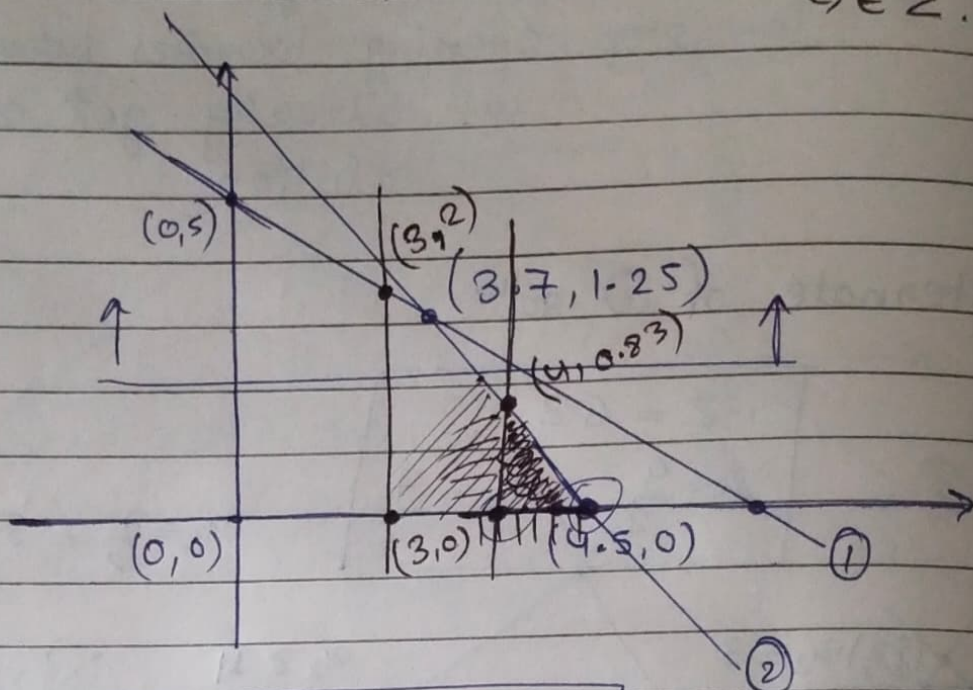 (0,5)
(3,2)
(3.7, 1.25)
(4, 0.83)
(0,0)
(3,0)
(4.5,0)
①
②